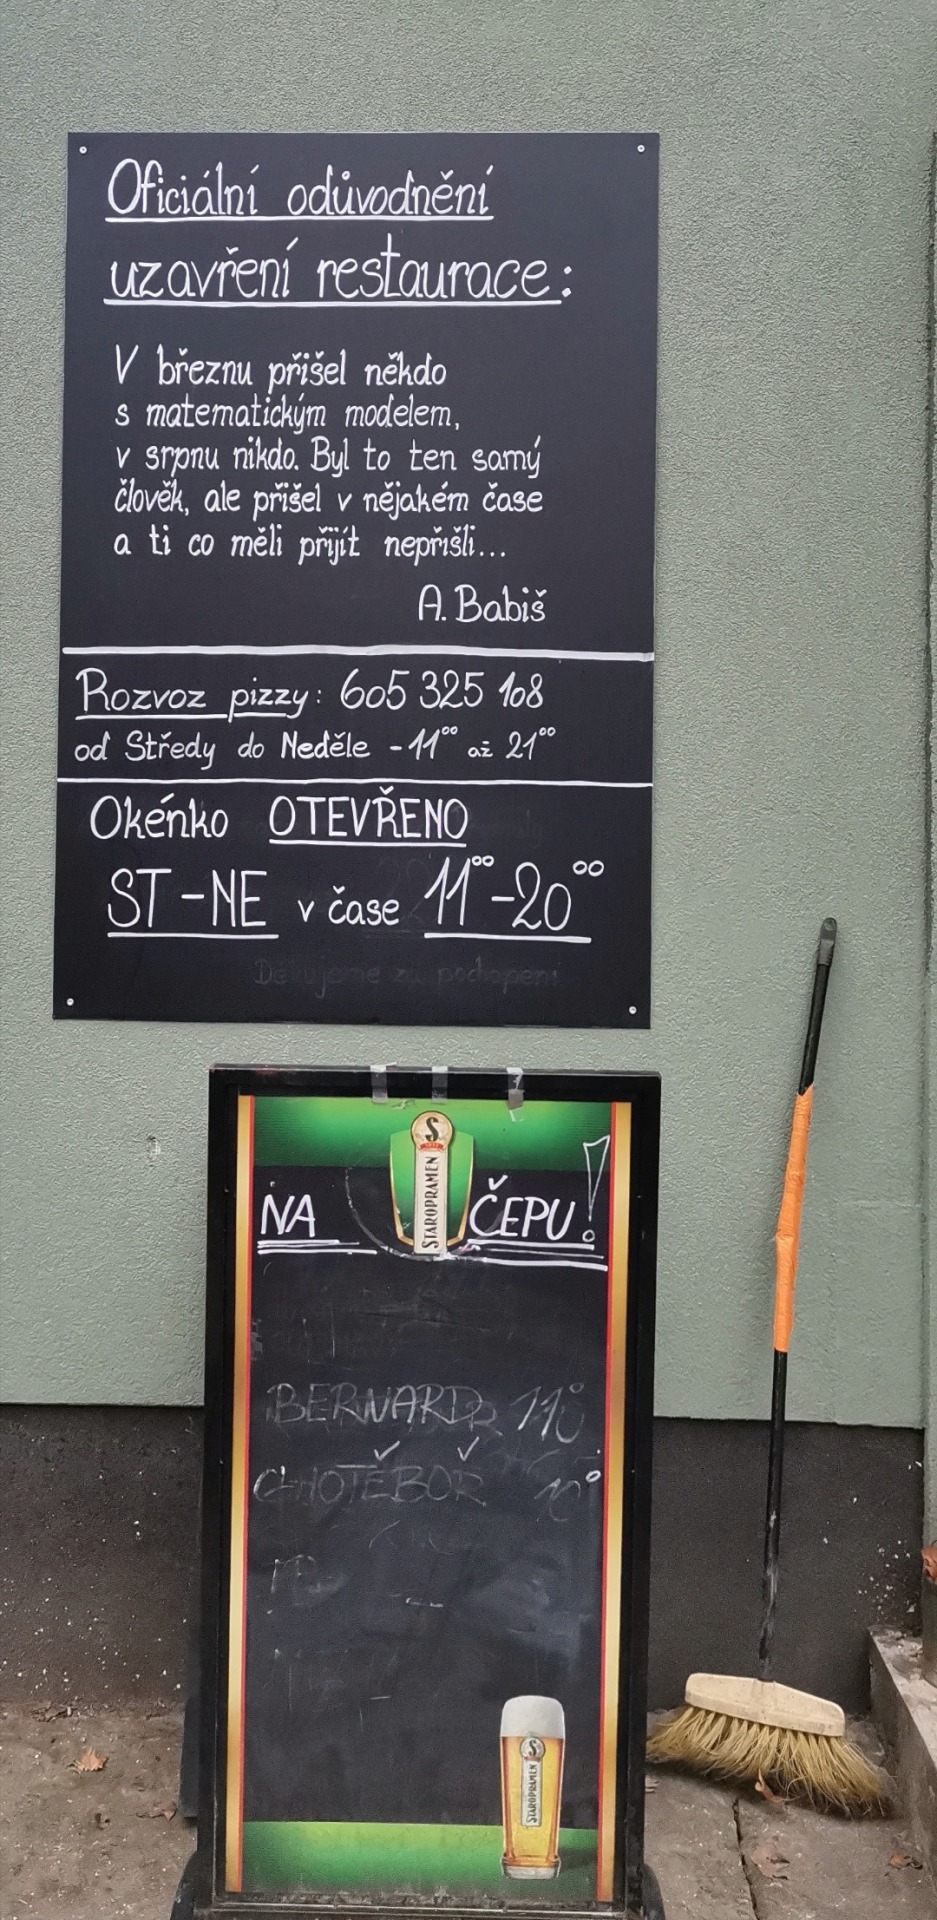 Oficiální odůvodnění
uzavření restaurace:
V březnu přišel někdo
s matematickým modelem,
v srpnu nikdo. Byl to ten samý
člověk, ale přišel v nějakém čase
a ti co měli přijít nepřišli...
A. Babiš
Rozvoz pizzy: 605 325 108
od Středy do Neděle - 11⁰⁰ až 21⁰⁰
Okénko OTEVŘENO
ST - NE v čase 11⁰⁰-20⁰⁰
Děkujeme za pochopení
S
STAROPRAMEN
NA ČEPU!
BERNARD 11°
CHOTĚBOŘ 10°
S
STAROPRAMEN